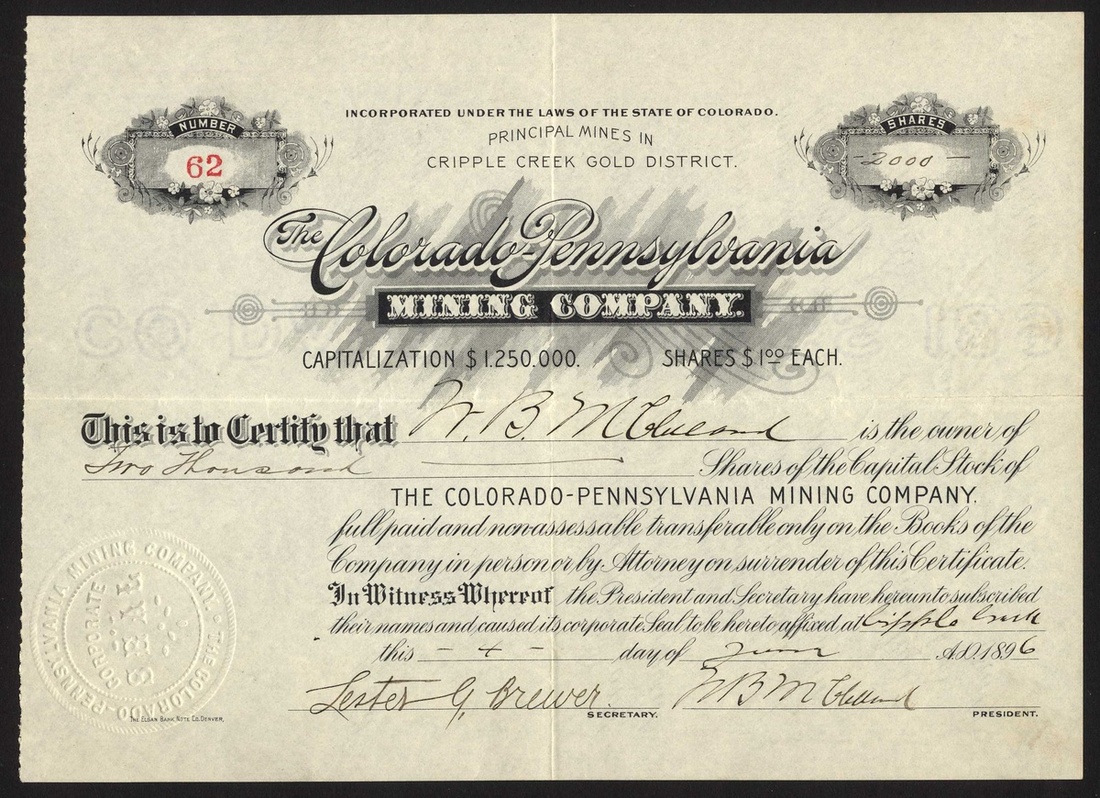 INCORPORATED UNDER THE LAWS OF THE STATE OF COLORADO.
PRINCIPAL MINES IN
CRIPPLE CREEK GOLD DISTRICT.
NUMBER
62
SHARES
-2000-
The Colorado-Pennsylvania
MINING COMPANY.
CAPITALIZATION $1.250.000. SHARES $1.00 EACH.
This is to Certify that W. B. McClelland is the owner of
Two Thousand Shares of the Capital Stock of
THE COLORADO-PENNSYLVANIA MINING COMPANY.
full paid and non assessable transferable only on the Books of the
Company in person or by Attorney on surrender of this Certificate.
In Witness Whereof the President and Secretary have hereunto subscribed
their names and caused its corporate Seal to be hereto affixed at Cripple Creek
this - 4 - day of June A.D. 1896
Lester G. Brewer. W B McClelland
SECRETARY. PRESIDENT.
THE COLORADO-PENNSYLVANIA MINING COMPANY.
CORPORATE
SEAL
THE ELGAN BANK NOTE CO. DENVER.